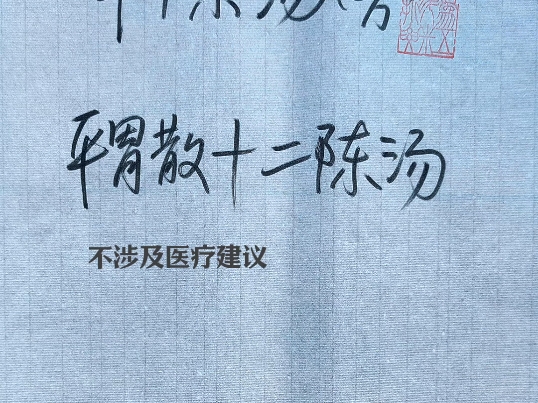 陈汤
平胃散十二陈汤
不涉及医疗建议